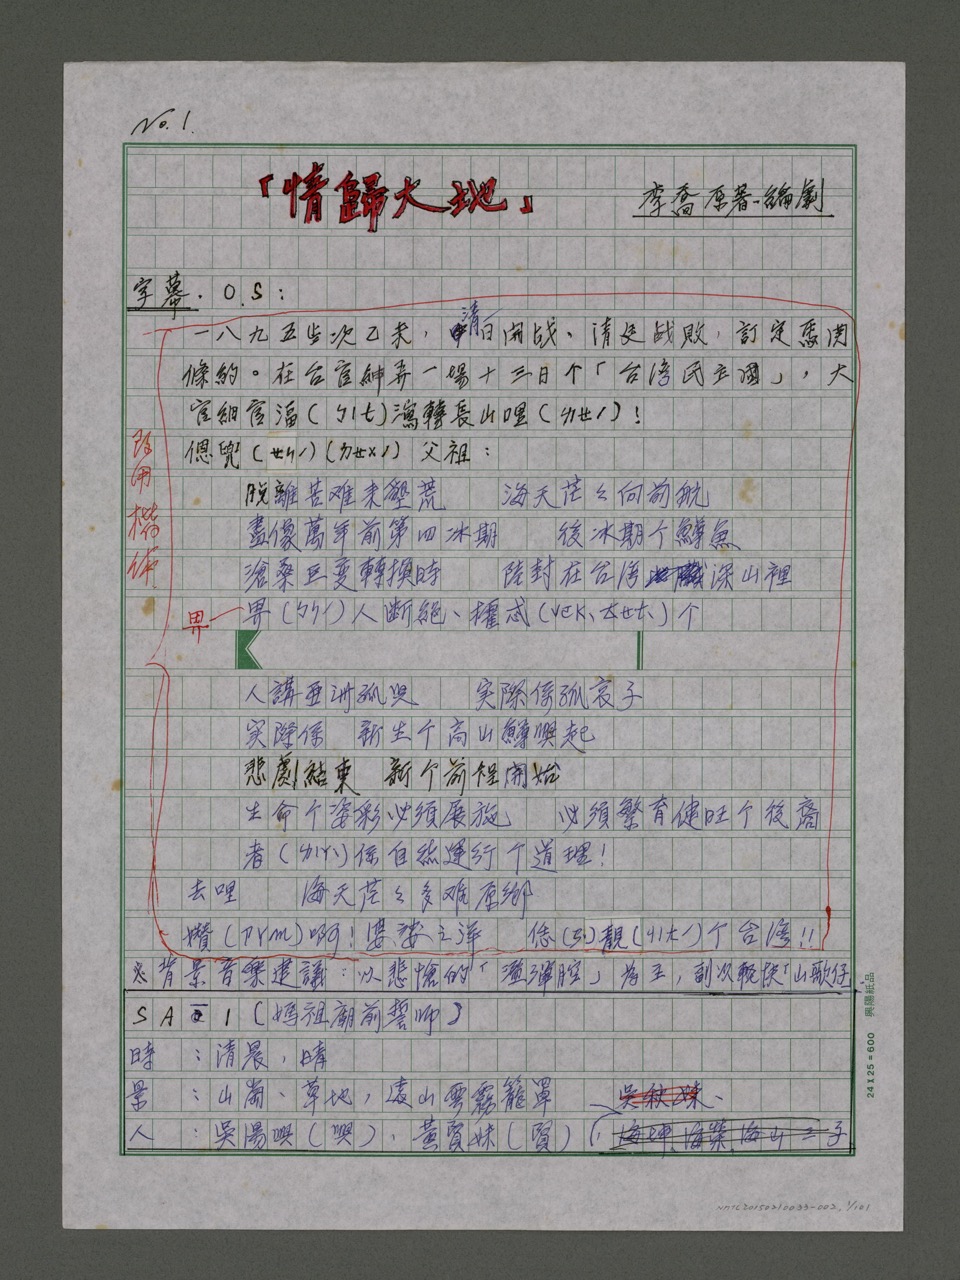 No.1.
「情歸大地」
李喬原著‧編劇
字幕．O.S：
一八九五岁次乙未，清日開战、清廷战敗，訂定馬関
條約。在台官紳弄一場十三日个「台湾民主國」，大
官細官溜(ㄌㄧㄜ)瀉轉長山哩(ㄌㄝˊ)！
偲兜 父祖：
脫離苦难来墾荒　海天茫々向前航
盡像萬年前第四冰期　後冰期个鱒魚
滄桑巨變轉換時　陸封在台湾深山裡
畀 畀(ㄅㄧˊ)人断絕、擢忒 个
改用楷体
人講亞洲孤児　実際係孤哀子
実際係　新生个高山鱒興起
悲劇結束　新个前程開始
生命个姿彩必須展施　必須繁育健旺个後裔
者(ㄌㄧㄚˋ)係自然運行个道理！
去哩　海天茫々多难原鄉
讚(ㄗㄚm)啊！婆娑之洋　恁 靚 个台湾!!
※背景音樂建議：以悲愴的「 腔」為主，副次輕快「山歌仔
SA 1（媽祖廟前誓師）
時　：清晨，晴
景　：山崗、草地，遠山雲霧籠罩
吳秋妹、
人　：吳湯興（興），黃賢妹（賢）（海坤、海葉、海山三子
24X25=600 興陽紙品
NMTL20150210033-002, 1/101